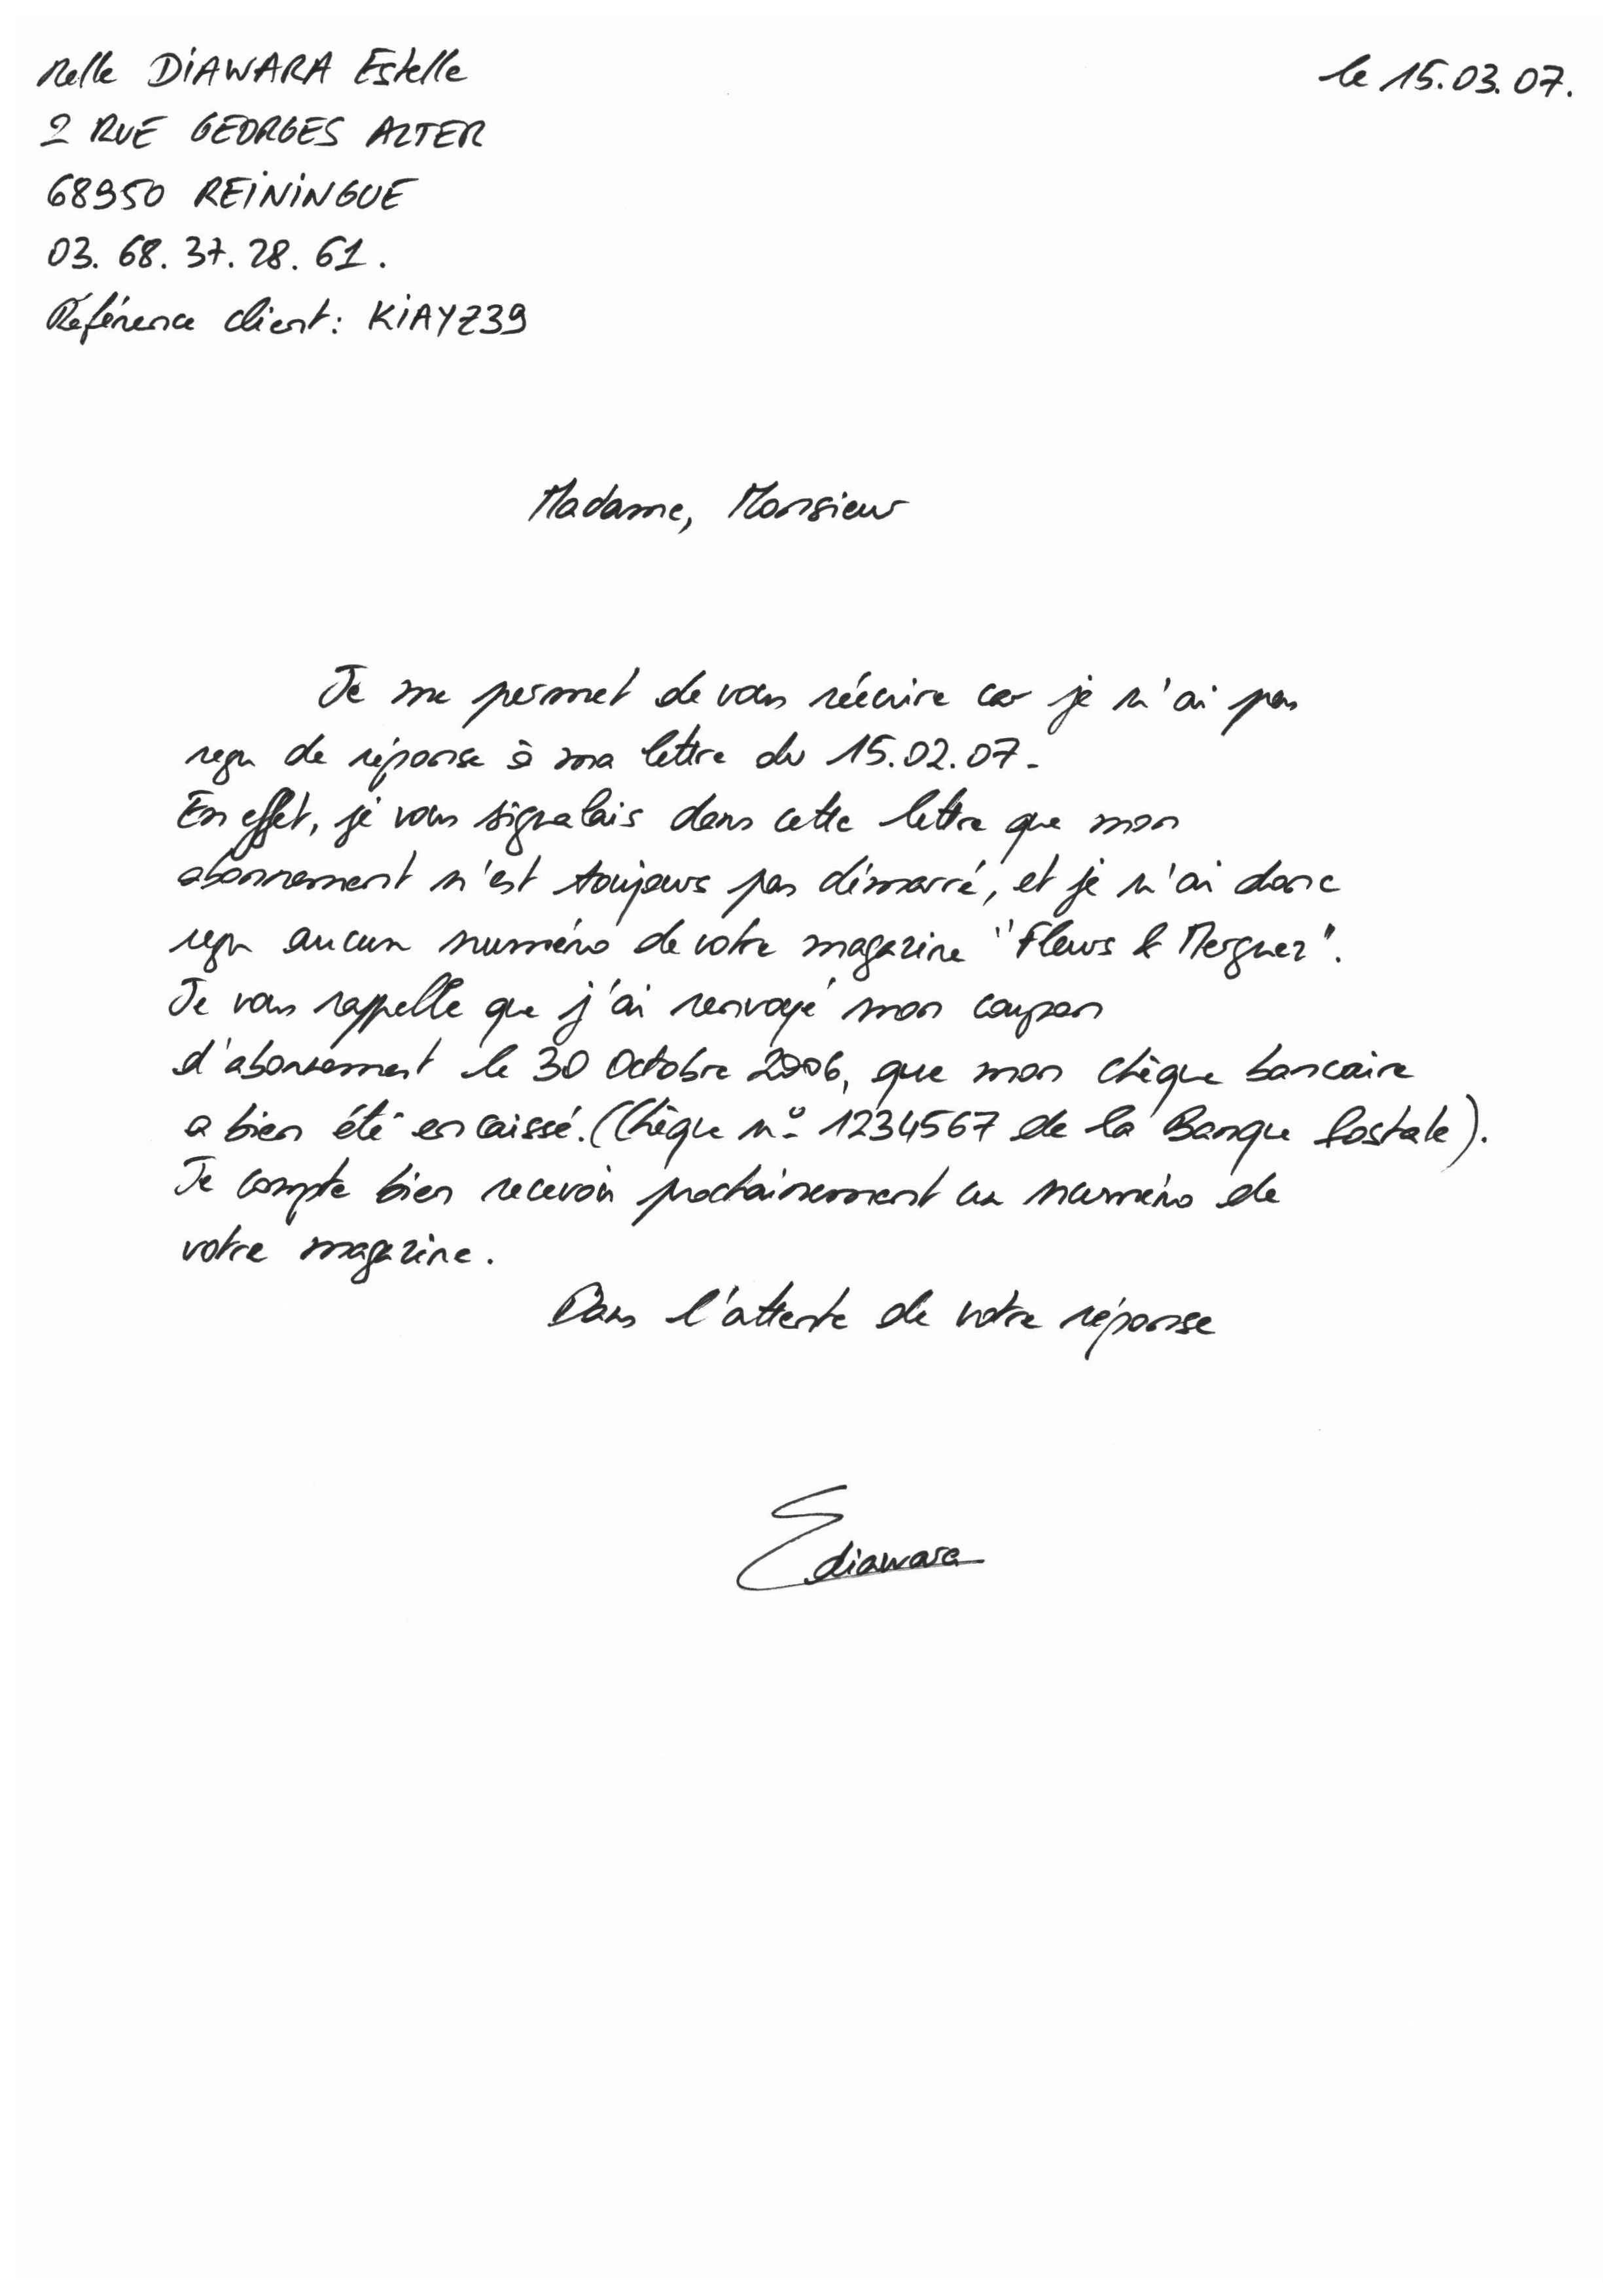 Melle DIAWARA Estelle
le 15.03.07.
2 RUE GEORGES ALTER
68950 REININGUE
03. 68. 37. 28. 61.
Référence client: KIAYZ39
Madame, Monsieur
Je me permet de vous réécrire car je n'ai pas
reçu de réponse à ma lettre du 15.02.07.
En effet, je vous signalais dans cette lettre que mon
abonnement n'est toujours pas démarré, et je n'ai donc
reçu aucun numéro de votre magazine "Fleurs & Merguez".
Je vous rappelle que j'ai renvoyé mon coupon
d'abonnement le 30 Octobre 2006, que mon chèque bancaire
a bien été encaissé. (Chèque n° 1234567 de la Banque Postale).
Je compte bien recevoir prochainement un numéro de
votre magazine.
Dans l'attente de votre réponse
Ediawara